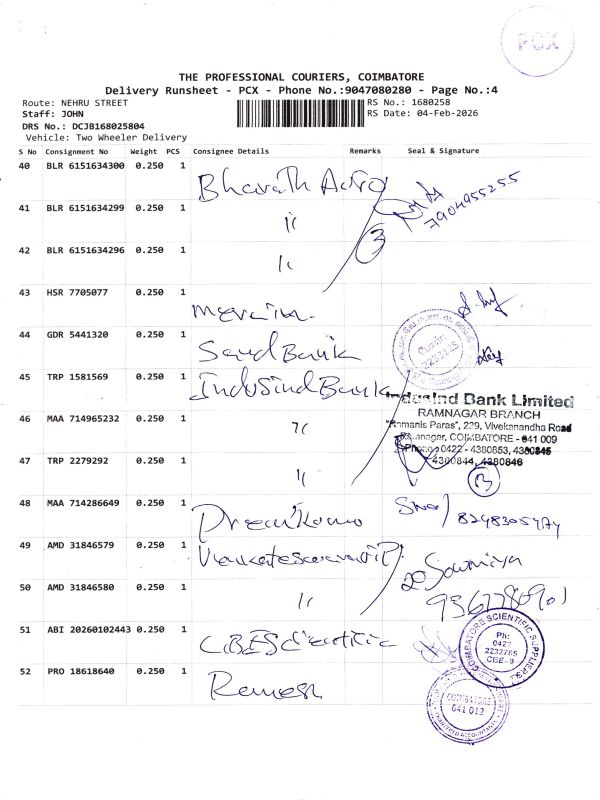 PCX
THE PROFESSIONAL COURIERS, COIMBATORE
Delivery Runsheet - PCX - Phone No.:9047080280 - Page No.:4
Route: NEHRU STREET
RS No.: 1680258
Staff: JOHN
RS Date: 04-Feb-2026
DRS No.: DCJB168025804
Vehicle: Two Wheeler Delivery
S No Consignment No Weight PCS Consignee Details Remarks Seal & Signature
40 BLR 6151634300 0.250 1 Bharath
7904955255
41 BLR 6151634299 0.250 1 "
3
42 BLR 6151634296 0.250 1 "
43 HSR 7705077 0.250 1
44 GDR 5441320 0.250 1 Bank
45 TRP 1581569 0.250 1 IndusInd Bank
IndusInd Bank Limited
RAMNAGAR BRANCH
46 MAA 714965232 0.250 1 "
"Ramanis Paras", 229, Vivekanandha Road
Ramnagar, COIMBATORE - 641 009
Phone : 0422 - 4380853, 4380845
47 TRP 2279292 0.250 1 "
4380844, 4380846
3
48 MAA 714286649 0.250 1
49 AMD 31846579 0.250 1
Sowmiya
50 AMD 31846580 0.250 1 "
51 ABI 20260102443 0.250 1 CBE Scientific
COIMBATORE SCIENTIFIC SUPPLIERS
Ph:
0422
2232765
CBE-9
52 PRO 18618640 0.250 1 Ramesh
COIMBATORE
641 012
CHARTERED ACCOUNTANTS